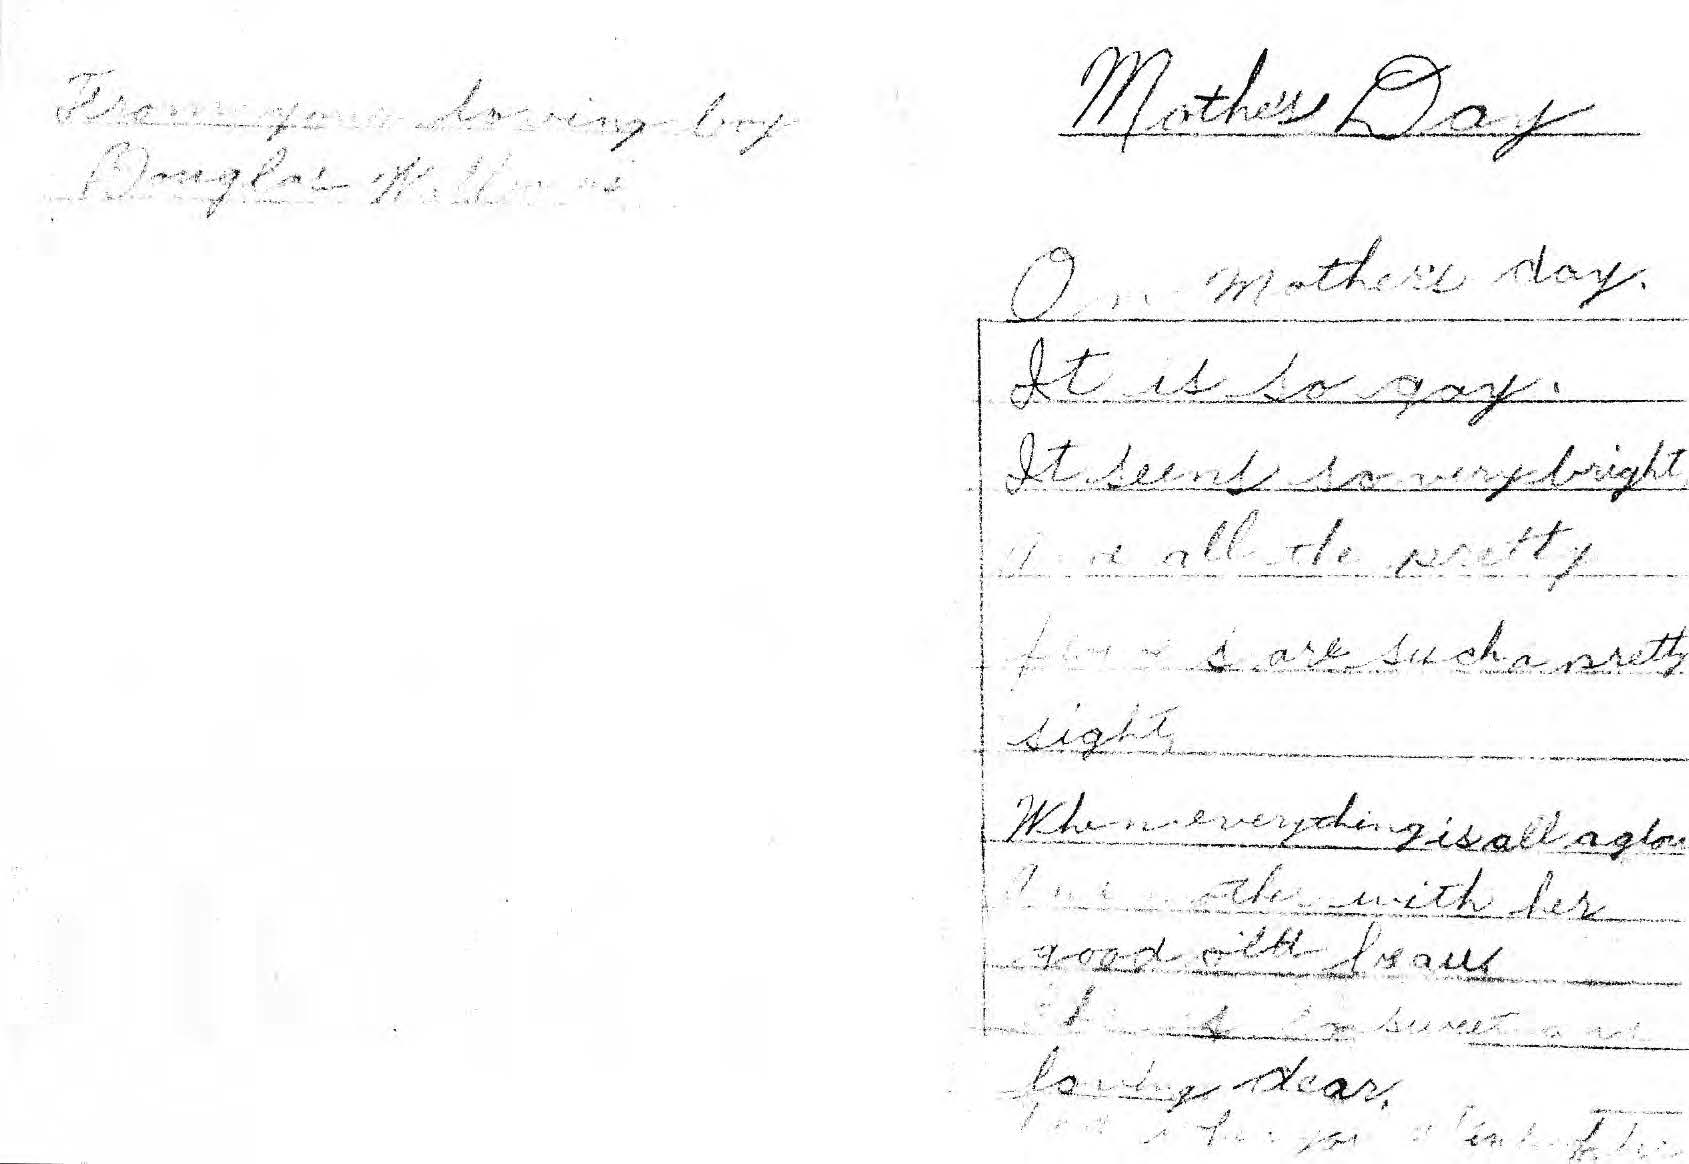 From your loving boy
Douglas
Mother's Day
On Mother's day.
It is so gay.
It seems so very bright,
And all the pretty
flowers are such a pretty
sight,
When everything is all aglow
And mother with her
good old
She is so sweet and
loving dear.
you